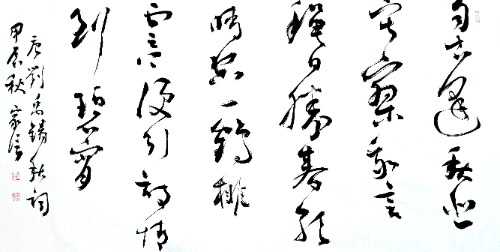 自古逢秋悲
寂寥我言
秋日勝春朝
晴空一鶴排
雲上便引詩情
到碧霄
唐劉禹錫秋詞
甲辰秋